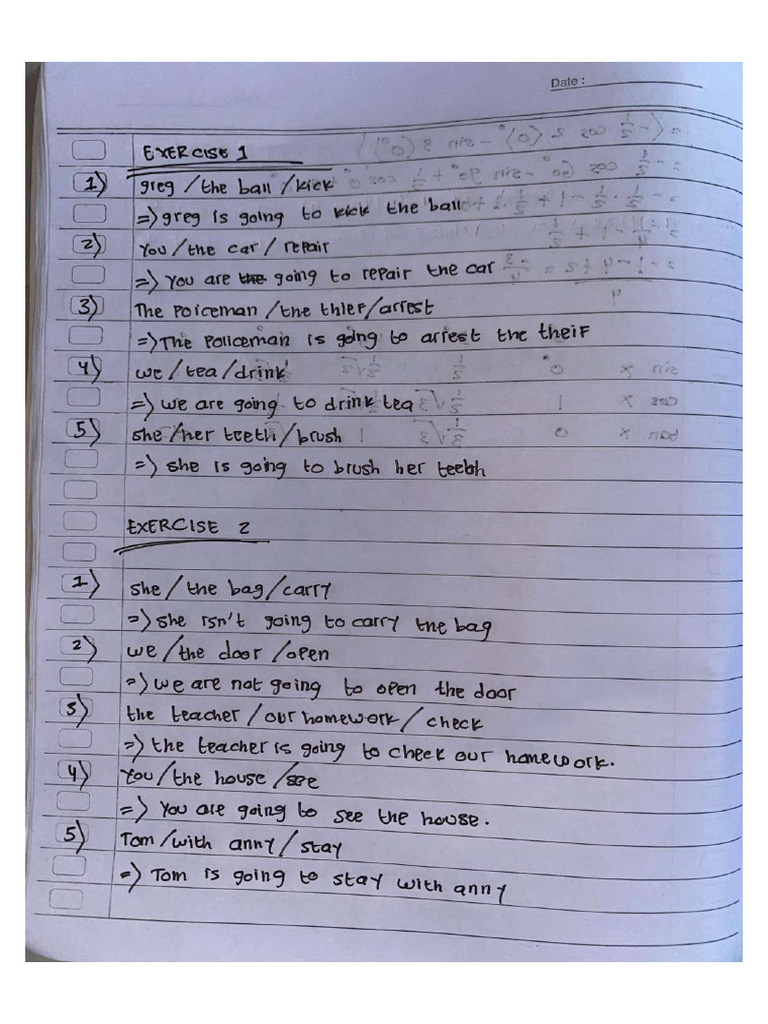 Date :
EXERCISE 1
1) greg / the ball / kick
=> greg is going to kick the ball
2) You / the car / repair
=> You are the going to repair the car
3) The Poiceman / the thief / arrest
=> The Policeman is going to arrest the theif
4) we / tea / drink
=> we are going to drink tea
5) she / her teeth / brush
=> she is going to brush her teeth
EXERCISE 2
1) she / the bag / carry
=> she isn't going to carry the bag
2) we / the door / open
=> we are not going to open the door
3) the teacher / our homework / check
=> the teacher is going to check our homework.
4) You / the house / see
=> You are going to see the house.
5) Tom / with anny / stay
=> Tom is going to stay with anny